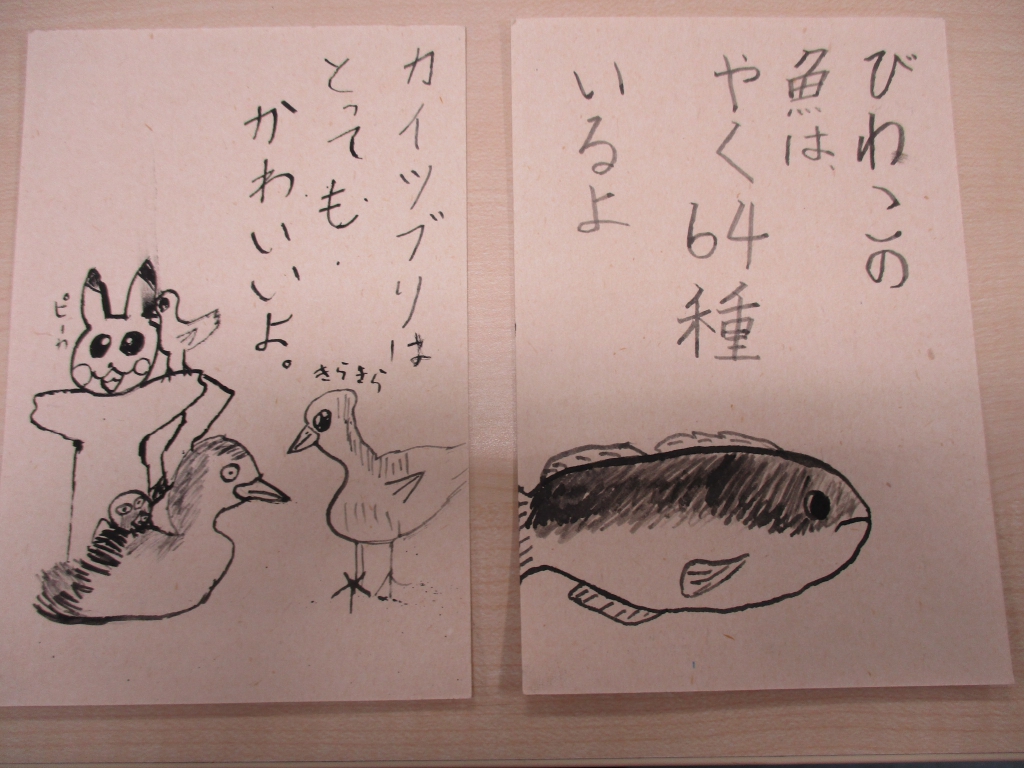 びわこの
魚は、
やく64種
いるよ
カイツブリは
とっても
かわいいよ。
きらきら